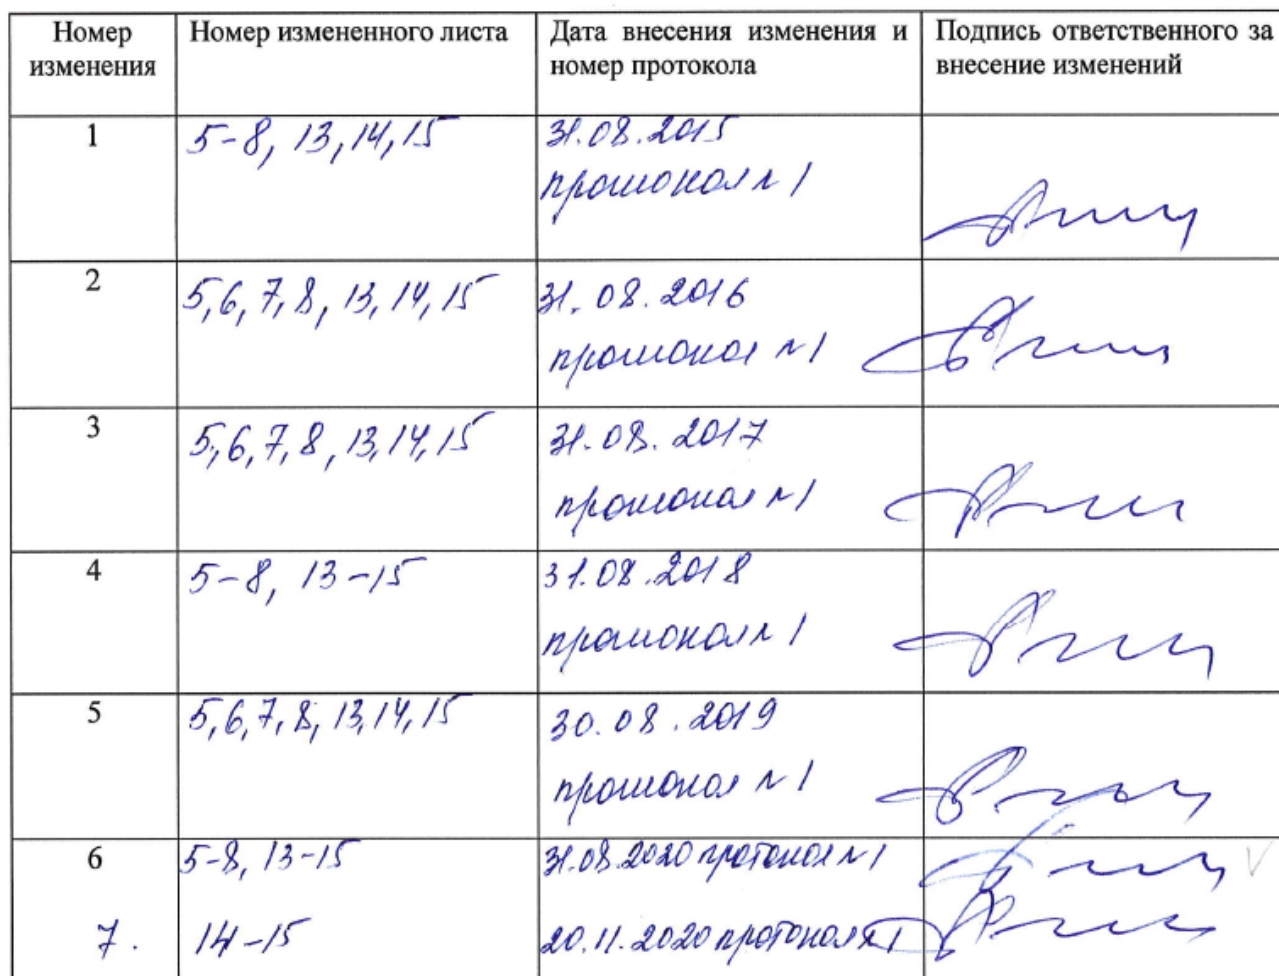 Номер изменения
Номер измененного листа
Дата внесения изменения и номер протокола
Подпись ответственного за внесение изменений
1
5-8, 13,14,15
31.08.2015
протокол №1
2
5,6,7,8,13,14,15
31.08.2016
протокол №1
3
5,6,7,8,13,14,15
31.08.2017
протокол №1
4
5-8, 13-15
31.08.2018
протокол №1
5
5,6,7,8,13,14,15
30.08.2019
протокол №1
6
5-8, 13-15
31.08.2020 протокол №1
7.
14-15
20.11.2020 протокол